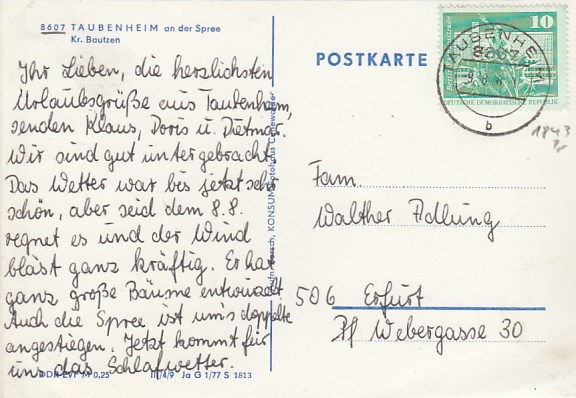 8607 TAUBENHEIM an der Spree
Kr. Bautzen
Ihr Lieben, die herzlichsten
Urlaubsgrüße aus Taubenheim,
senden Klaus, Doris u. Dietmar.
Wir sind gut untergebracht.
Das Wetter war bis jetzt sehr
schön, aber seid dem 8.8.
regnet es und der Wind
bläst ganz kräftig. Er hat
ganz große Bäume entwurzelt
Auch die Spree ist um's doppelte
angestiegen. Jetzt kommt für
uns das Schlafwetter.
III/4/9 Ja G 1/77 S 1813
KONSUM
POSTKARTE
10
DEUTSCHE DEMOKRATISCHE REPUBLIK
TAUBENHEIM
8607
b
1843
Fam.
Walther Adlung
506 Erfurt
Pf Webergasse 30